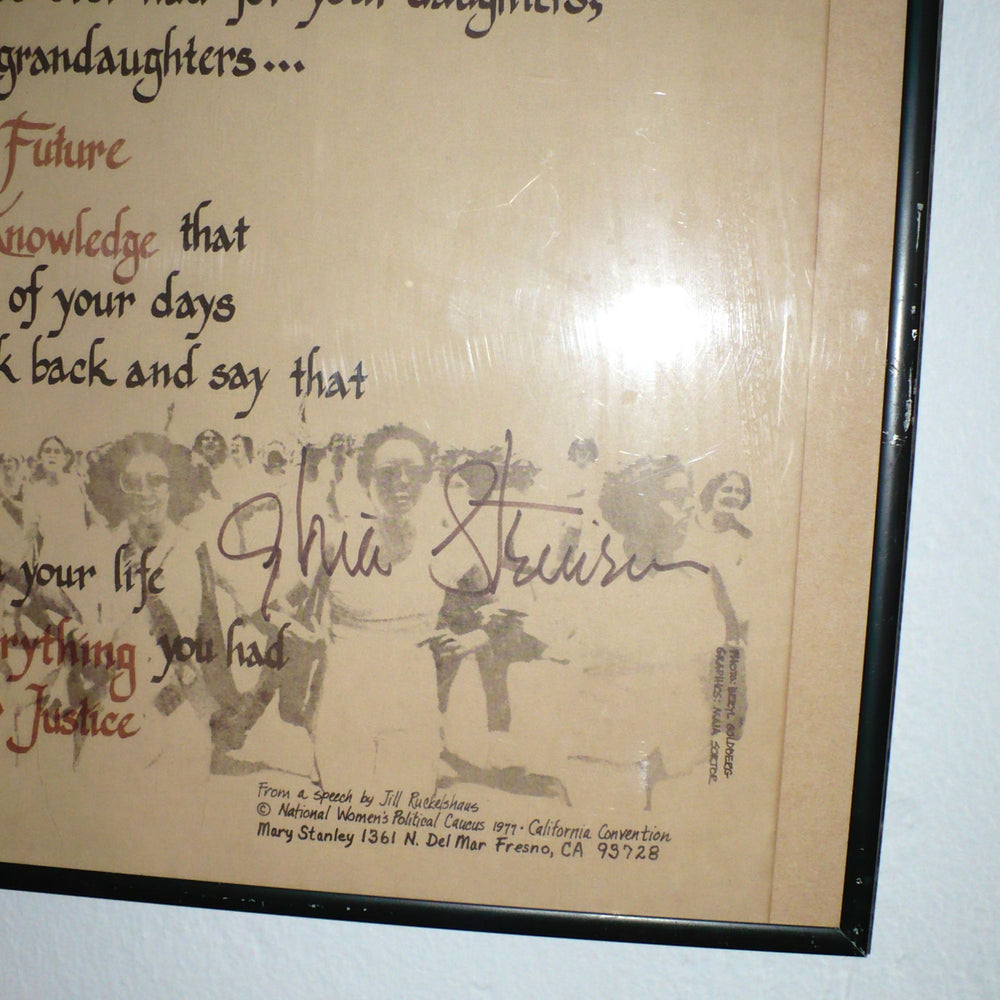 had for your daughters,
grandaughters...
Future
Knowledge that
of your days
k back and say that
Gloria Steinem
your life
rything you had
Justice
PHOTO: BERYL GOLDBERG
GRAPHICS: MAIA SORTOR
From a speech by Jill Ruckelshaus
© National Women's Political Caucus 1977 · California Convention
Mary Stanley 1361 N. Del Mar Fresno, CA 93728